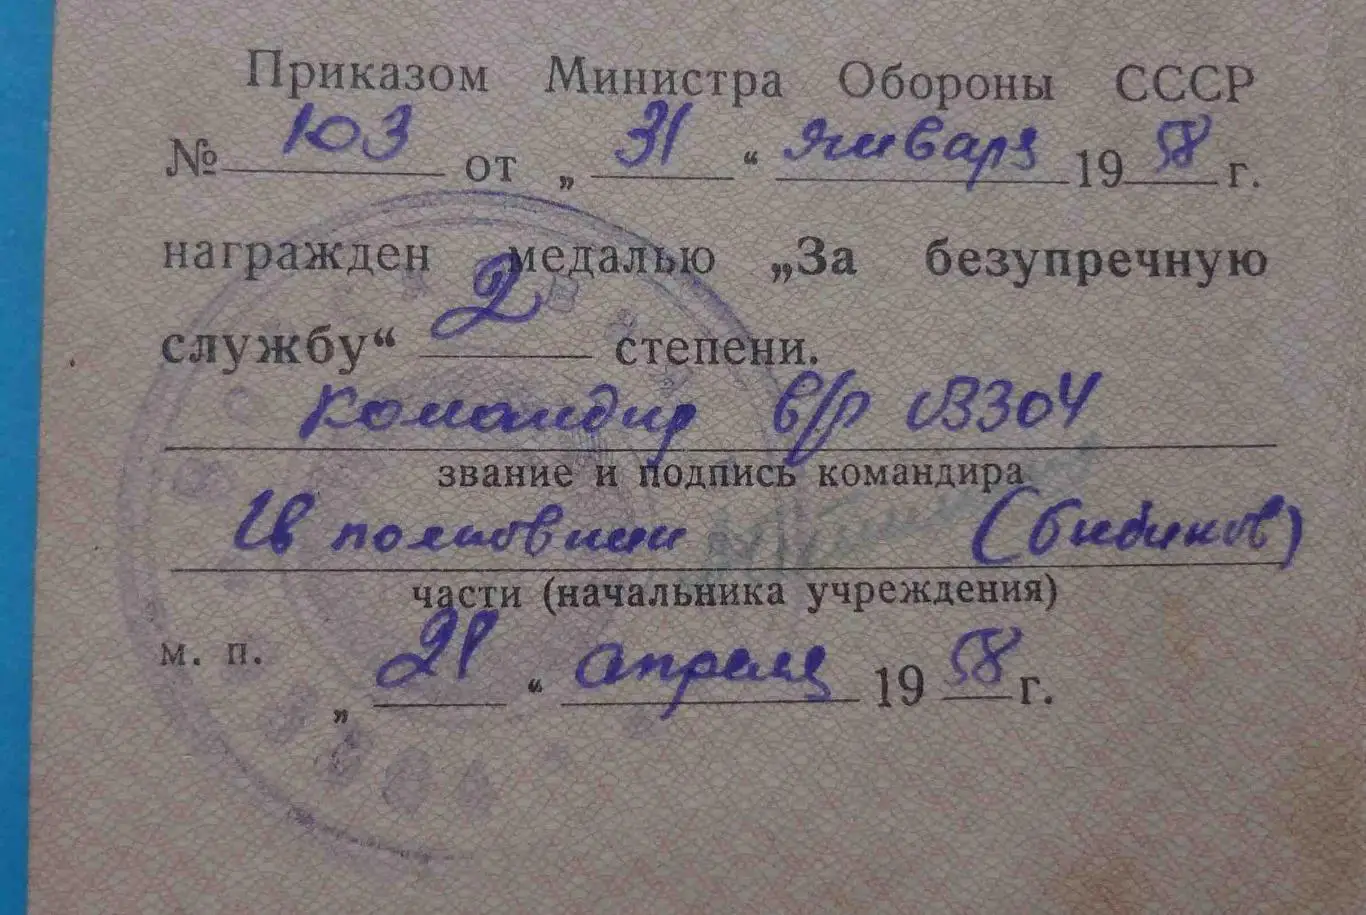 Приказом Министра Обороны СССР
№ 103 от „31“ января 1958 г.
награжден медалью „За безупречную
службу“ 2 степени.
Командир в/р 03304
звание и подпись командира
Гв полковник (Бибиков)
части (начальника учреждения)
м. п. „21“ апреля 1958 г.